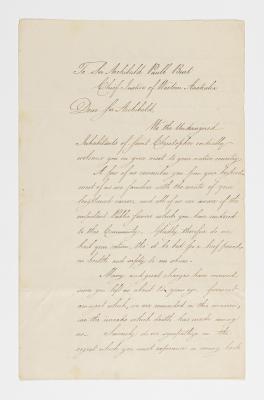 To Sir Archibald Paull Burt
Chief Justice of Western Australia
Dear Sir Archibald,
We the Undersigned
Inhabitants of Saint Christopher cordially
welcome you on your visit to your native country.
A few of us remember you from your boyhood
most of us are familiar with the events of your
brightened career, and all of us are aware of the
important Public favors which you have rendered
to this Community. Gladly therefore do we
hail your return, tho' it be but for a brief period,
in health and safety to our shores.
Many and great changes have occurred
since you left us about 12 years ago, foremost
amongst which, we are reminded on this occasion,
are the inroads which death has made among
us. Sincerely do we sympathise in the
regret which you must experience in coming back